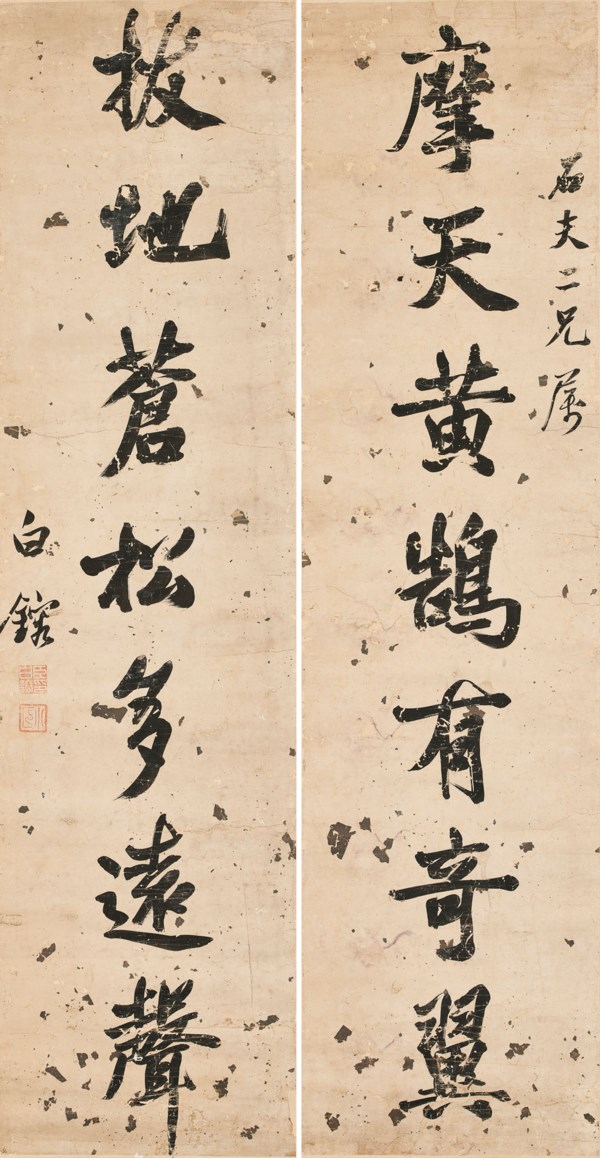 石夫二兄属
摩天黄鵠有奇翼
拔地蒼松多遠聲
白鎔